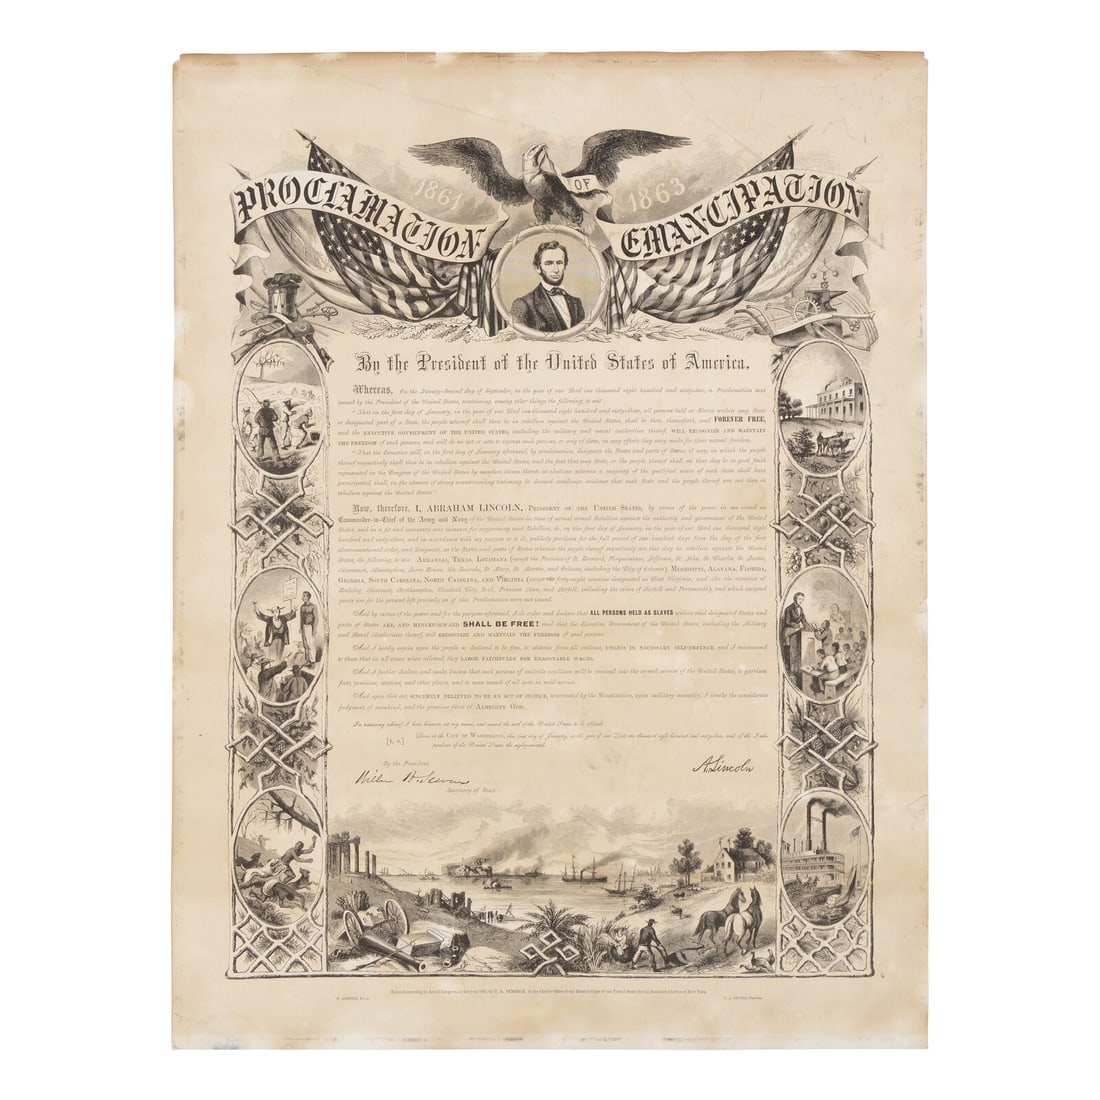 1861 OF 1863
PROCLAMATION EMANCIPATION
By the President of the United States of America.
Whereas, On the Twenty-Second day of September, in the year of our Lord one thousand eight hundred and sixty-two, a Proclamation was
issued by the President of the United States, containing, among other things the following, to wit:
"That on the first day of January, in the year of our Lord one thousand eight hundred and sixty-three, all persons held as Slaves within any State
or designated part of a State, the people whereof shall then be in rebellion against the United States, shall be then, thenceforth, and FOREVER FREE,
and the EXECUTIVE GOVERNMENT OF THE UNITED STATES, including the military and naval authorities thereof, WILL RECOGNIZE AND MAINTAIN
THE FREEDOM of such persons, and will do no act or acts to repress such persons, or any of them, in any efforts they may make for their actual freedom.
"That the Executive will, on the first day of January aforesaid, by proclamation, designate the States and parts of States, if any, in which the people
thereof respectively shall then be in rebellion against the United States, and the fact that any State, or the people thereof shall on that day be in good faith
represented in the Congress of the United States by members chosen thereto at elections wherein a majority of the qualified voters of such State shall have
participated; shall, in the absence of strong countervailing testimony be deemed conclusive evidence that such State and the people thereof are not then in
rebellion against the United States"
Now, therefore, I, ABRAHAM LINCOLN, PRESIDENT OF THE UNITED STATES, by virtue of the power in me vested as
Commander-in-Chief of the Army and Navy of the United States in time of actual armed Rebellion against the authority and government of the United
States, and as a fit and necessary war measure for suppressing said Rebellion, do, on this first day of January, in the year of our Lord one thousand eight
hundred and sixty-three, and in accordance with my purpose so to do, publicly proclaim for the full period of one hundred days from the day of the first
above-mentioned order, and designate, as the States and parts of States wherein the people thereof respectively are this day in rebellion against the United
States, the following, to wit: ARKANSAS, TEXAS, LOUISIANA (except the Parishes of St. Bernard, Plaquemines, Jefferson, St. John, St. Charles, St. James,
Ascension, Assumption, Terre Bonne, St. Mary, St. Martin, and Orleans, including the City of Orleans), MISSISSIPPI, ALABAMA, FLORIDA,
GEORGIA, SOUTH CAROLINA, NORTH CAROLINA, AND VIRGINIA (except the forty-eight counties designated as West Virginia, and also the counties of
Berkeley, Accomac, Northampton, Elizabeth City, York, Princess Ann, and Norfolk, including the cities of Norfolk and Portsmouth), and which excepted
parts are for the present left precisely as if this Proclamation were not issued.
And by virtue of the power and for the purpose aforesaid, I do order and declare that ALL PERSONS HELD AS SLAVES within said designated States and
parts of States ARE, AND HENCEFORWARD SHALL BE FREE! and that the Executive Government of the United States, including the Military
and Naval Authorities thereof, will RECOGNIZE AND MAINTAIN THE FREEDOM of said persons
And I hereby enjoin upon the people so declared to be free, to abstain from all violence, UNLESS IN NECESSARY SELF-DEFENCE, and I recommend
to them that in all cases, when allowed, they LABOR FAITHFULLY FOR REASONABLE WAGES.
And I further declare and make known that such persons of suitable condition will be received into the armed service of the United States, to garrison
forts, positions, stations, and other places, and to man vessels of all sorts in said service.
And upon this act, SINCERELY BELIEVED TO BE AN ACT OF JUSTICE, warranted by the Constitution, upon military necessity, I invoke the considerate
judgment of mankind, and the gracious favor of ALMIGHTY GOD.
In testimony whereof I have hereunto set my name, and caused the seal of the United States to be affixed
Done at the CITY OF WASHINGTON, this first day of January, in the year of our Lord one thousand eight hundred and sixty-three, and of the Inde-
[L. S.] pendence of the United States the eighty-seventh.
By the President
A. Lincoln
William H. Seward
Secretary of State
Entered according to Act of Congress, in the year 1864, by
in the Clerk's Office of the District Court of the United States for the Southern District of New York.